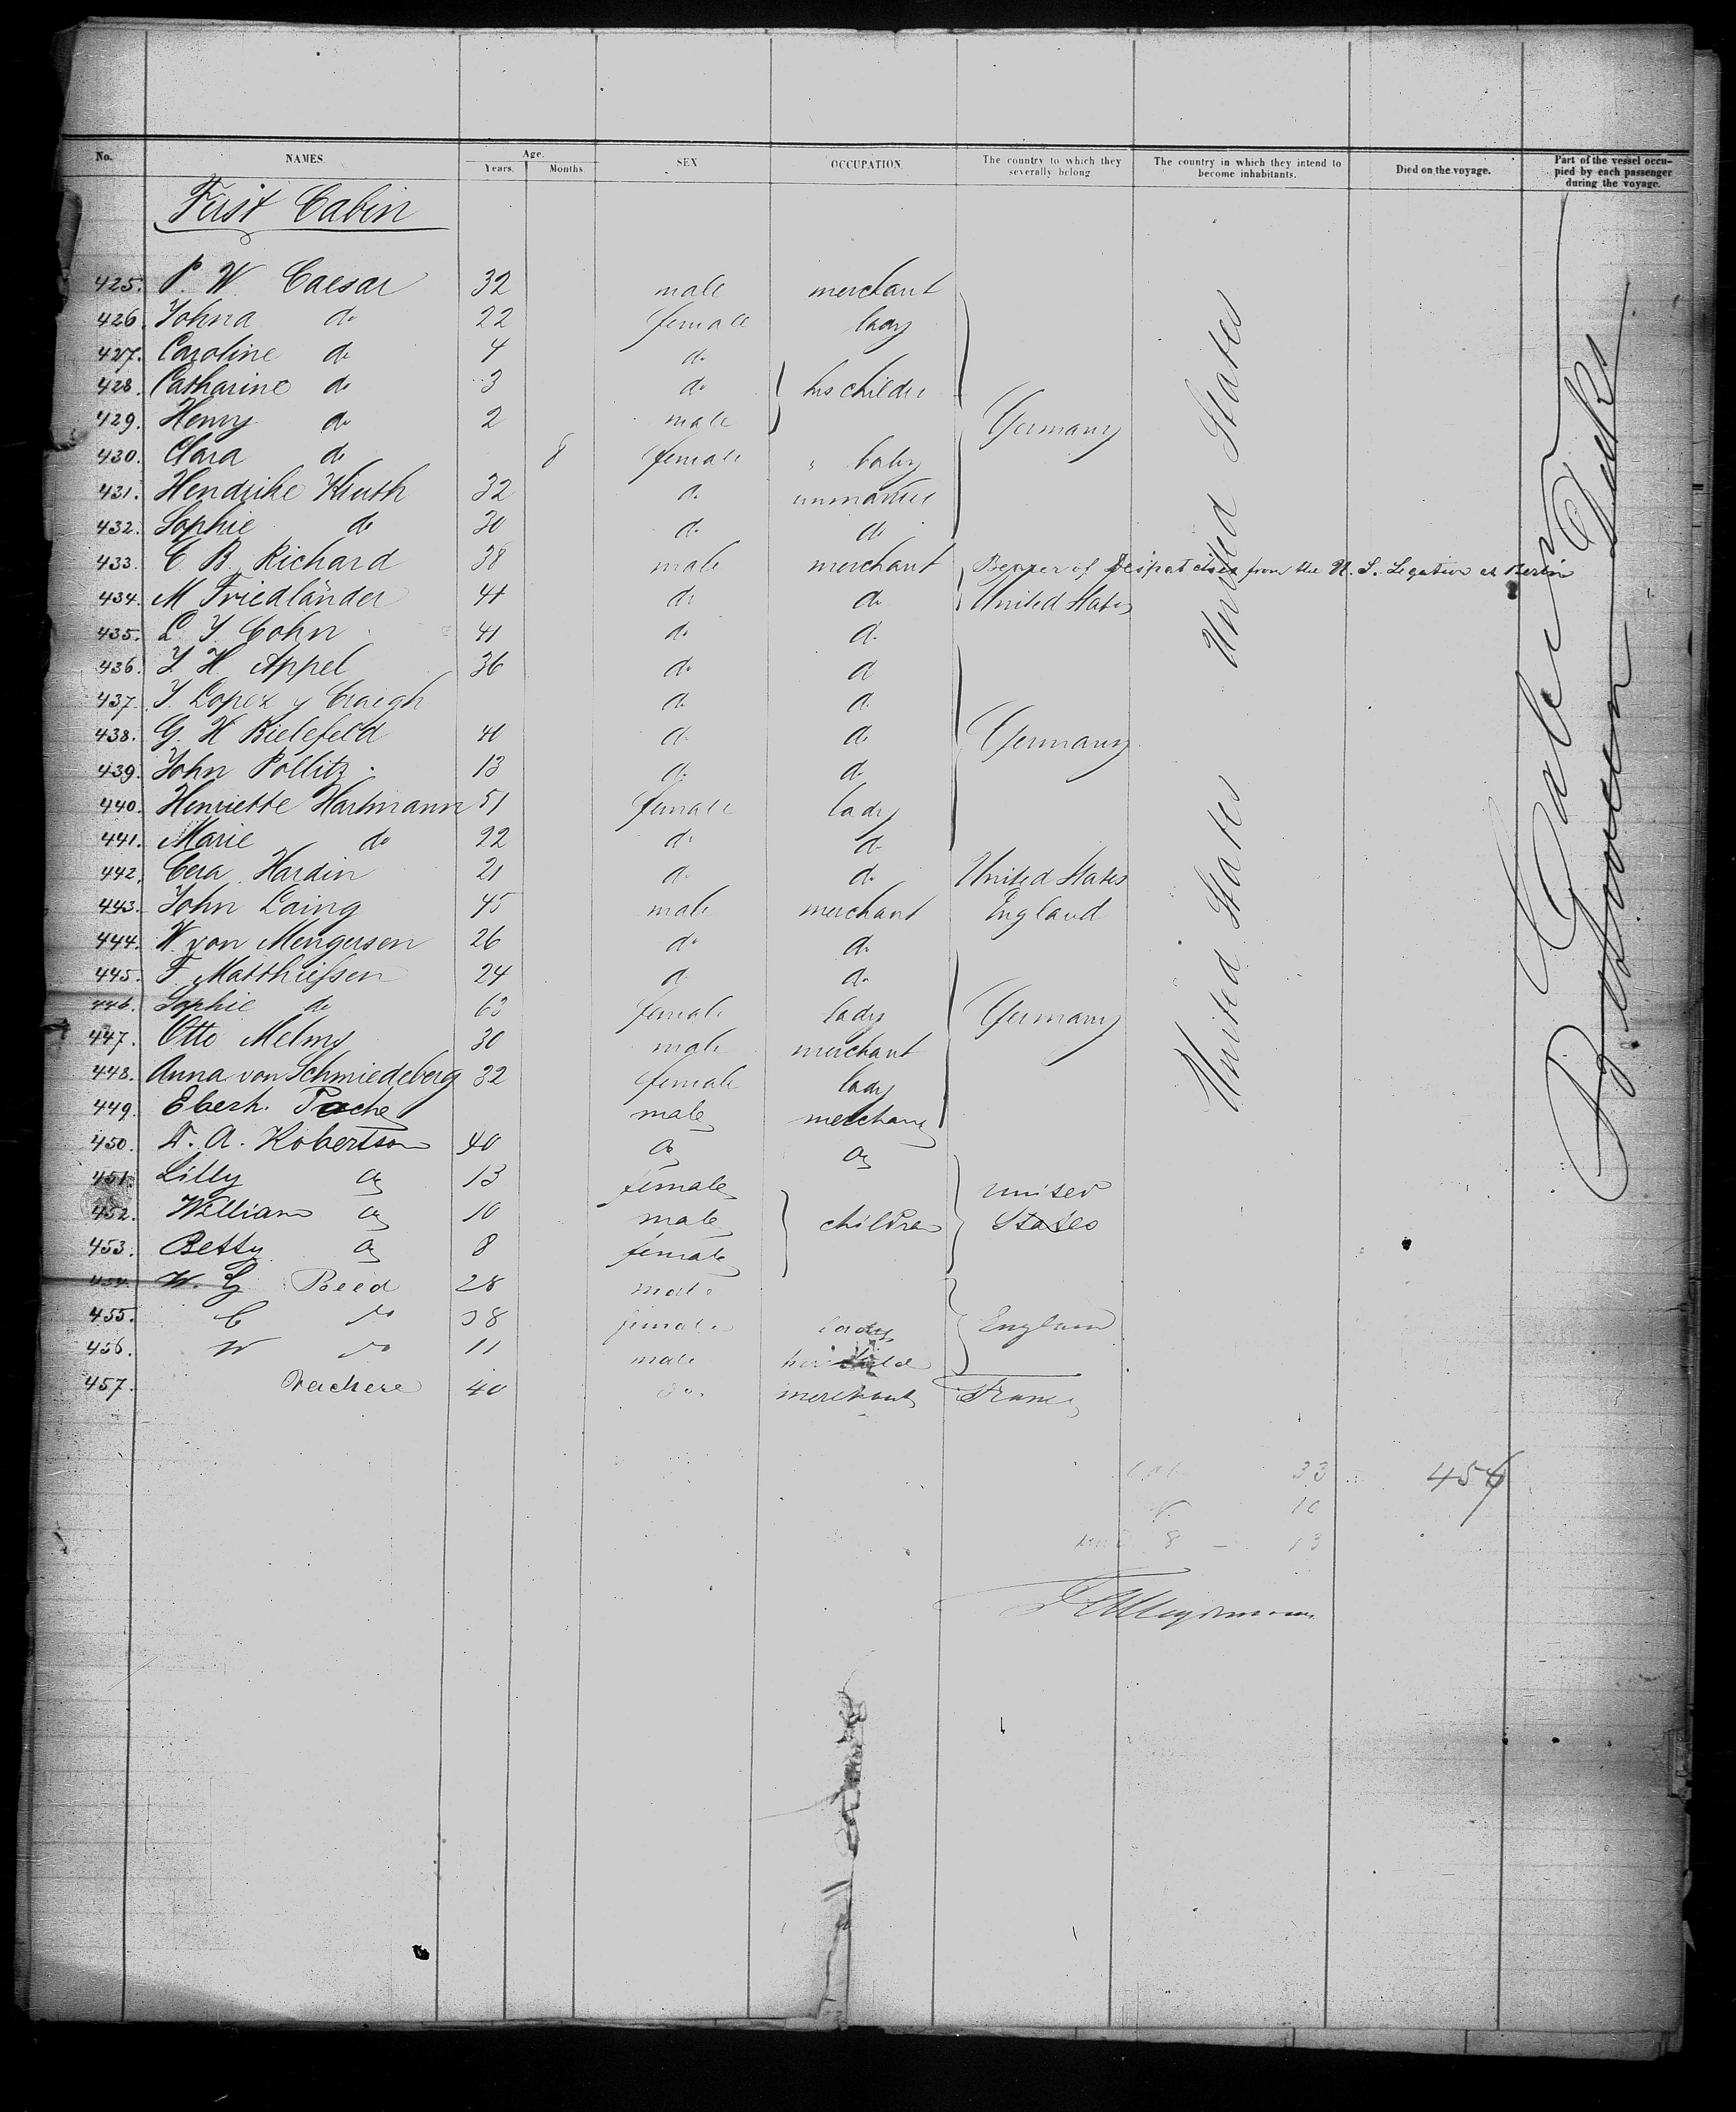 No. NAMES. Age. Years. Months. SEX OCCUPATION. The country to which they severally belong The country in which they intend to become inhabitants. Died on the voyage. Part of the vessel occupied by each passenger during the voyage.
First Cabin
425. P. W. Caesar 32 male merchant
426. Johna do 22 female lady
427. Caroline do 4 do
428. Catharine do 3 do his childr
429. Henry do 2 male Germany
430. Clara do 8 female " baby
431. Hendrike 32 do unmarried
432. Sophie do 30 do do
433. C. B. Richard 38 male merchant Bearer of Despatches from the U. S. Legation at Berlin
434. M Friedländer 44 do do United States
435. L. J. Cohn 41 do do
436. J. H. Appel 36 do do
437. J. Lopez y do do
438. G. H Bielefeld 41 do do Germany
439. John Pollitz 13 do do
440. Henriette Hartmann 51 female lady
441. Marie do 22 do do
442. Cera Hardin 21 do do United States
443. John Laing 45 male merchant England
444. W. von Mengersen 26 do do
445. F. Matthiessen 24 do do
446. Sophie do 63 female lady Germany
447. Otto Melms 30 male merchant
448. Anna von Schmiedeberg 32 female lady
449. Eberh. Pache male merchant
450. A. Robertson 40 do do
451. Lilly do 13 female United
452. William do 10 male children States
453. Betty do 8 female
454. W. Reed 28 male
455. C do 38 female lady England
456. W do 11 male her child
457. 40 do merchant France
United States
United States
Between Decks
33 457
10
8 - 13